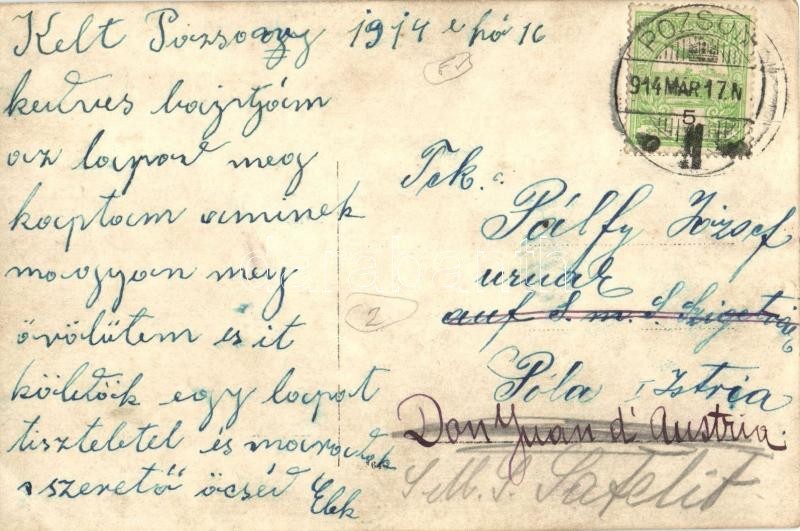 Kelt Pozsony 1914 e hó 16
kedves bátyám
az lapod meg
kaptam aminek
nagyon meg
örölütem es it
küldök egy lapot
tisztelettel és maradok
szerető öcséd Elek
POZSONY
914 MAR 17. N
5
Tek.
Pálfy József
urnak
auf S. m. S. Szigetvár
Póla Istria
Don Juan d' Austria.
S.M.S. Satelit
2